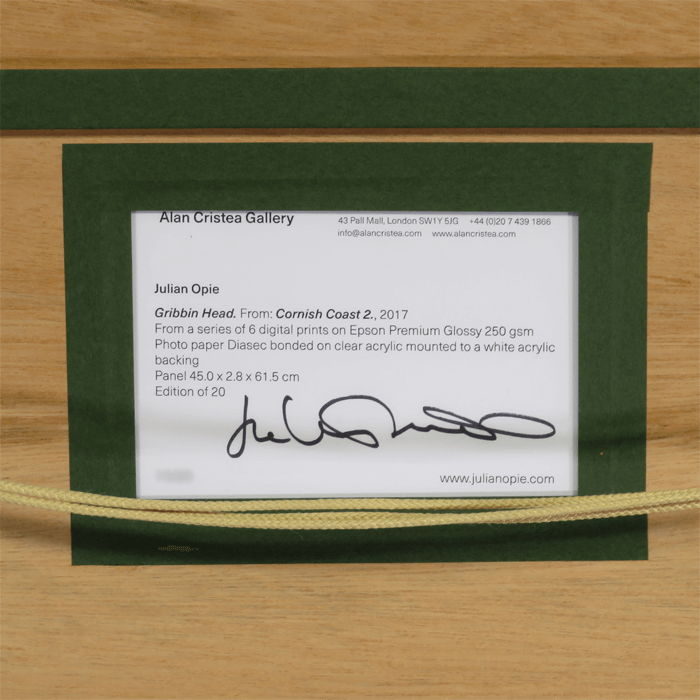 Alan Cristea Gallery
43 Pall Mall, London SW1Y 5JG +44 (0)20 7 439 1866
info@alancristea.com www.alancristea.com
Julian Opie
Gribbin Head. From: Cornish Coast 2., 2017
From a series of 6 digital prints on Epson Premium Glossy 250 gsm
Photo paper Diasec bonded on clear acrylic mounted to a white acrylic
backing
Panel 45.0 x 2.8 x 61.5 cm
Edition of 20
www.julianopie.com